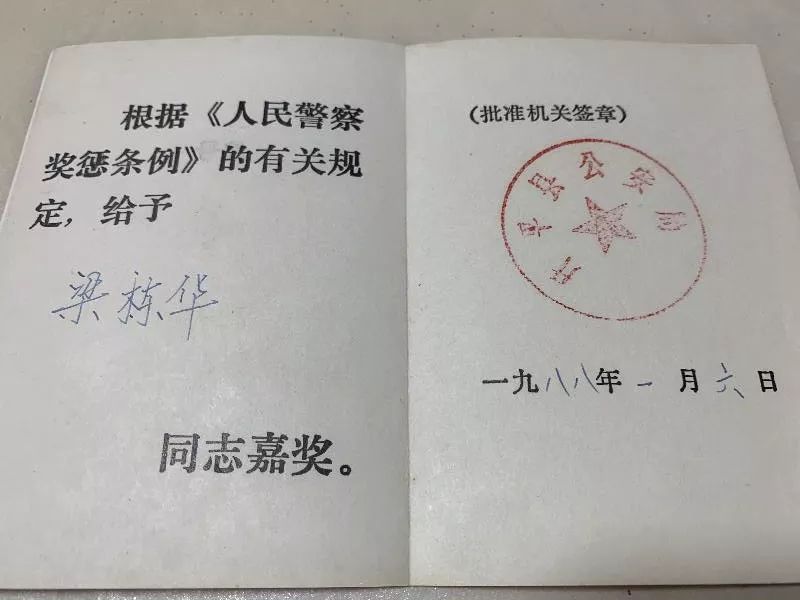 根据《人民警察
奖惩条例》的有关规
定，给予
梁栋华
同志嘉奖。
（批准机关签章）
阜县公安局
一九八八年一月六日